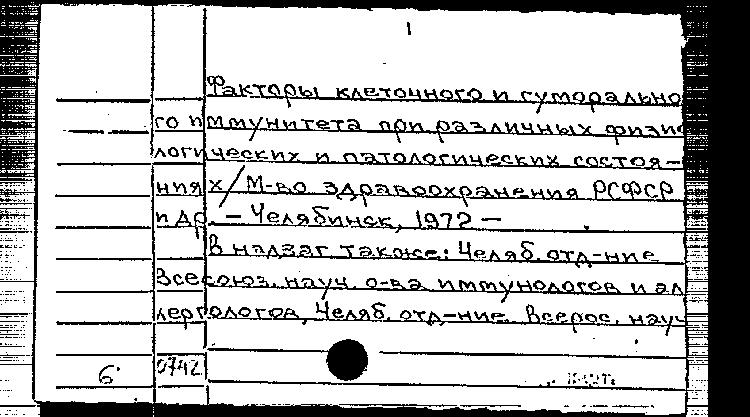 1
Факторы клеточного и гуморально
го иммунитета при различных физио
логических и патологических состоя-
ниях / М-во здравоохранения РСФСР
и др. – Челябинск, 1972 –
В надзаг. также: Челяб. отд-ние
Всесоюз. науч. о-ва иммунологов и ал
лергологов, Челяб. отд-ние Всерос. науч
6 0742